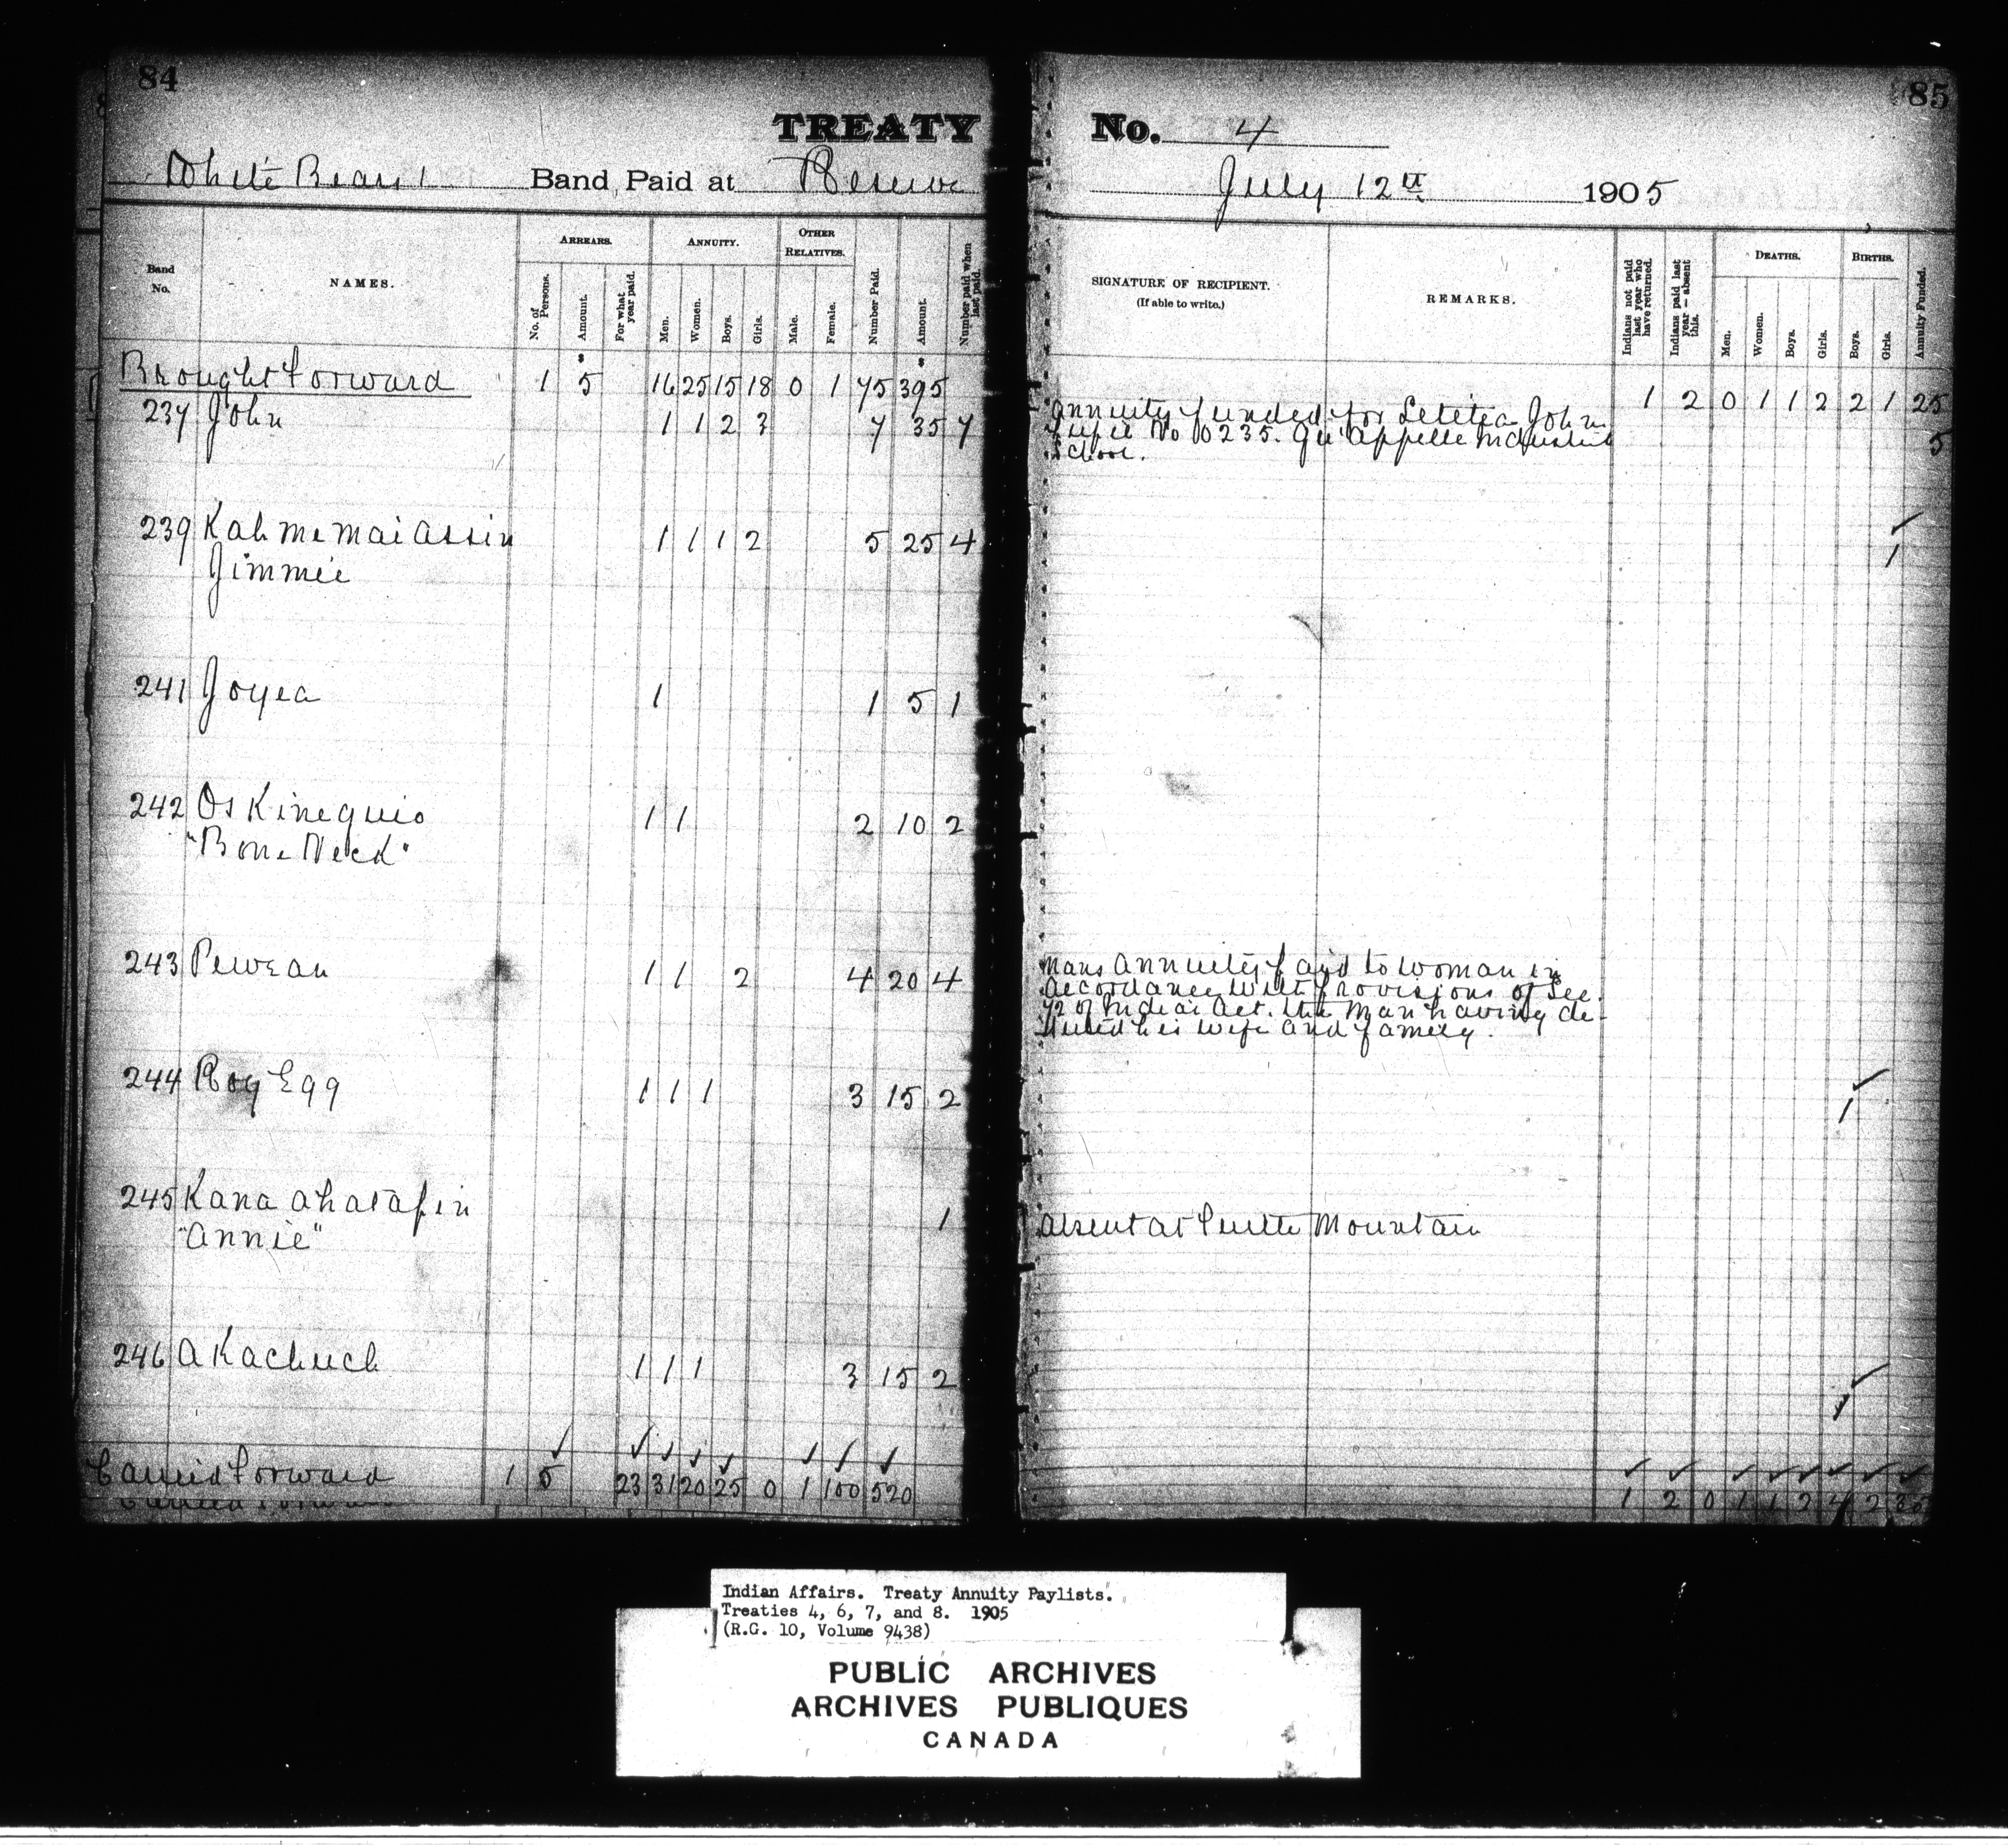 84
85
TREATY No. 4
White Bear's Band Paid at Reserve July 12th 1905
Band No.
NAMES.
ARREARS.
No. of Persons.
Amount.
For what year paid.
ANNUITY.
Men.
Women.
Boys.
Girls.
OTHER RELATIVES.
Male.
Female.
Number Paid.
Amount.
Number paid when last paid.
SIGNATURE OF RECIPIENT.
(If able to write.)
REMARKS.
Indians not paid last year who have returned.
Indians paid last year — absent this.
DEATHS.
Men.
Women.
Boys.
Girls.
BIRTHS.
Boys.
Girls.
Annuity Funded.
Brought forward 1 5 16 25 15 18 0 1 75 395 1 2 0 1 1 2 2 1 25
237 John 1 1 2 3 7 35 7 5
Annuity funded for Letitia John
Pupil No 0235. Qu'Appelle Industrial
School.
239 Kah me mai assin 1 1 1 2 5 25 4 1
Jimmie
241 Joyea 1 1 5 1
242 Os Kinequio 1 1 2 10 2
"Bone Neck"
243 Pewean 1 1 2 4 20 4
Mans annuity paid to woman in
accordance with provisions of Sec.
72 of Indian Act. the man having de-
serted his wife and family.
244 Roy Egg 1 1 1 3 15 2 1
245 Kana ahatapin 1 Absent at Turtle Mountain
"Annie"
246 A Kachuch 1 1 1 3 15 2 1
Carried forward 1 5 23 31 20 25 0 1 100 520 1 2 0 1 1 2 4 2 30
Indian Affairs. Treaty Annuity Paylists.
Treaties 4, 6, 7, and 8. 1905
(R.G. 10, Volume 9438)
PUBLIC ARCHIVES
ARCHIVES PUBLIQUES
CANADA